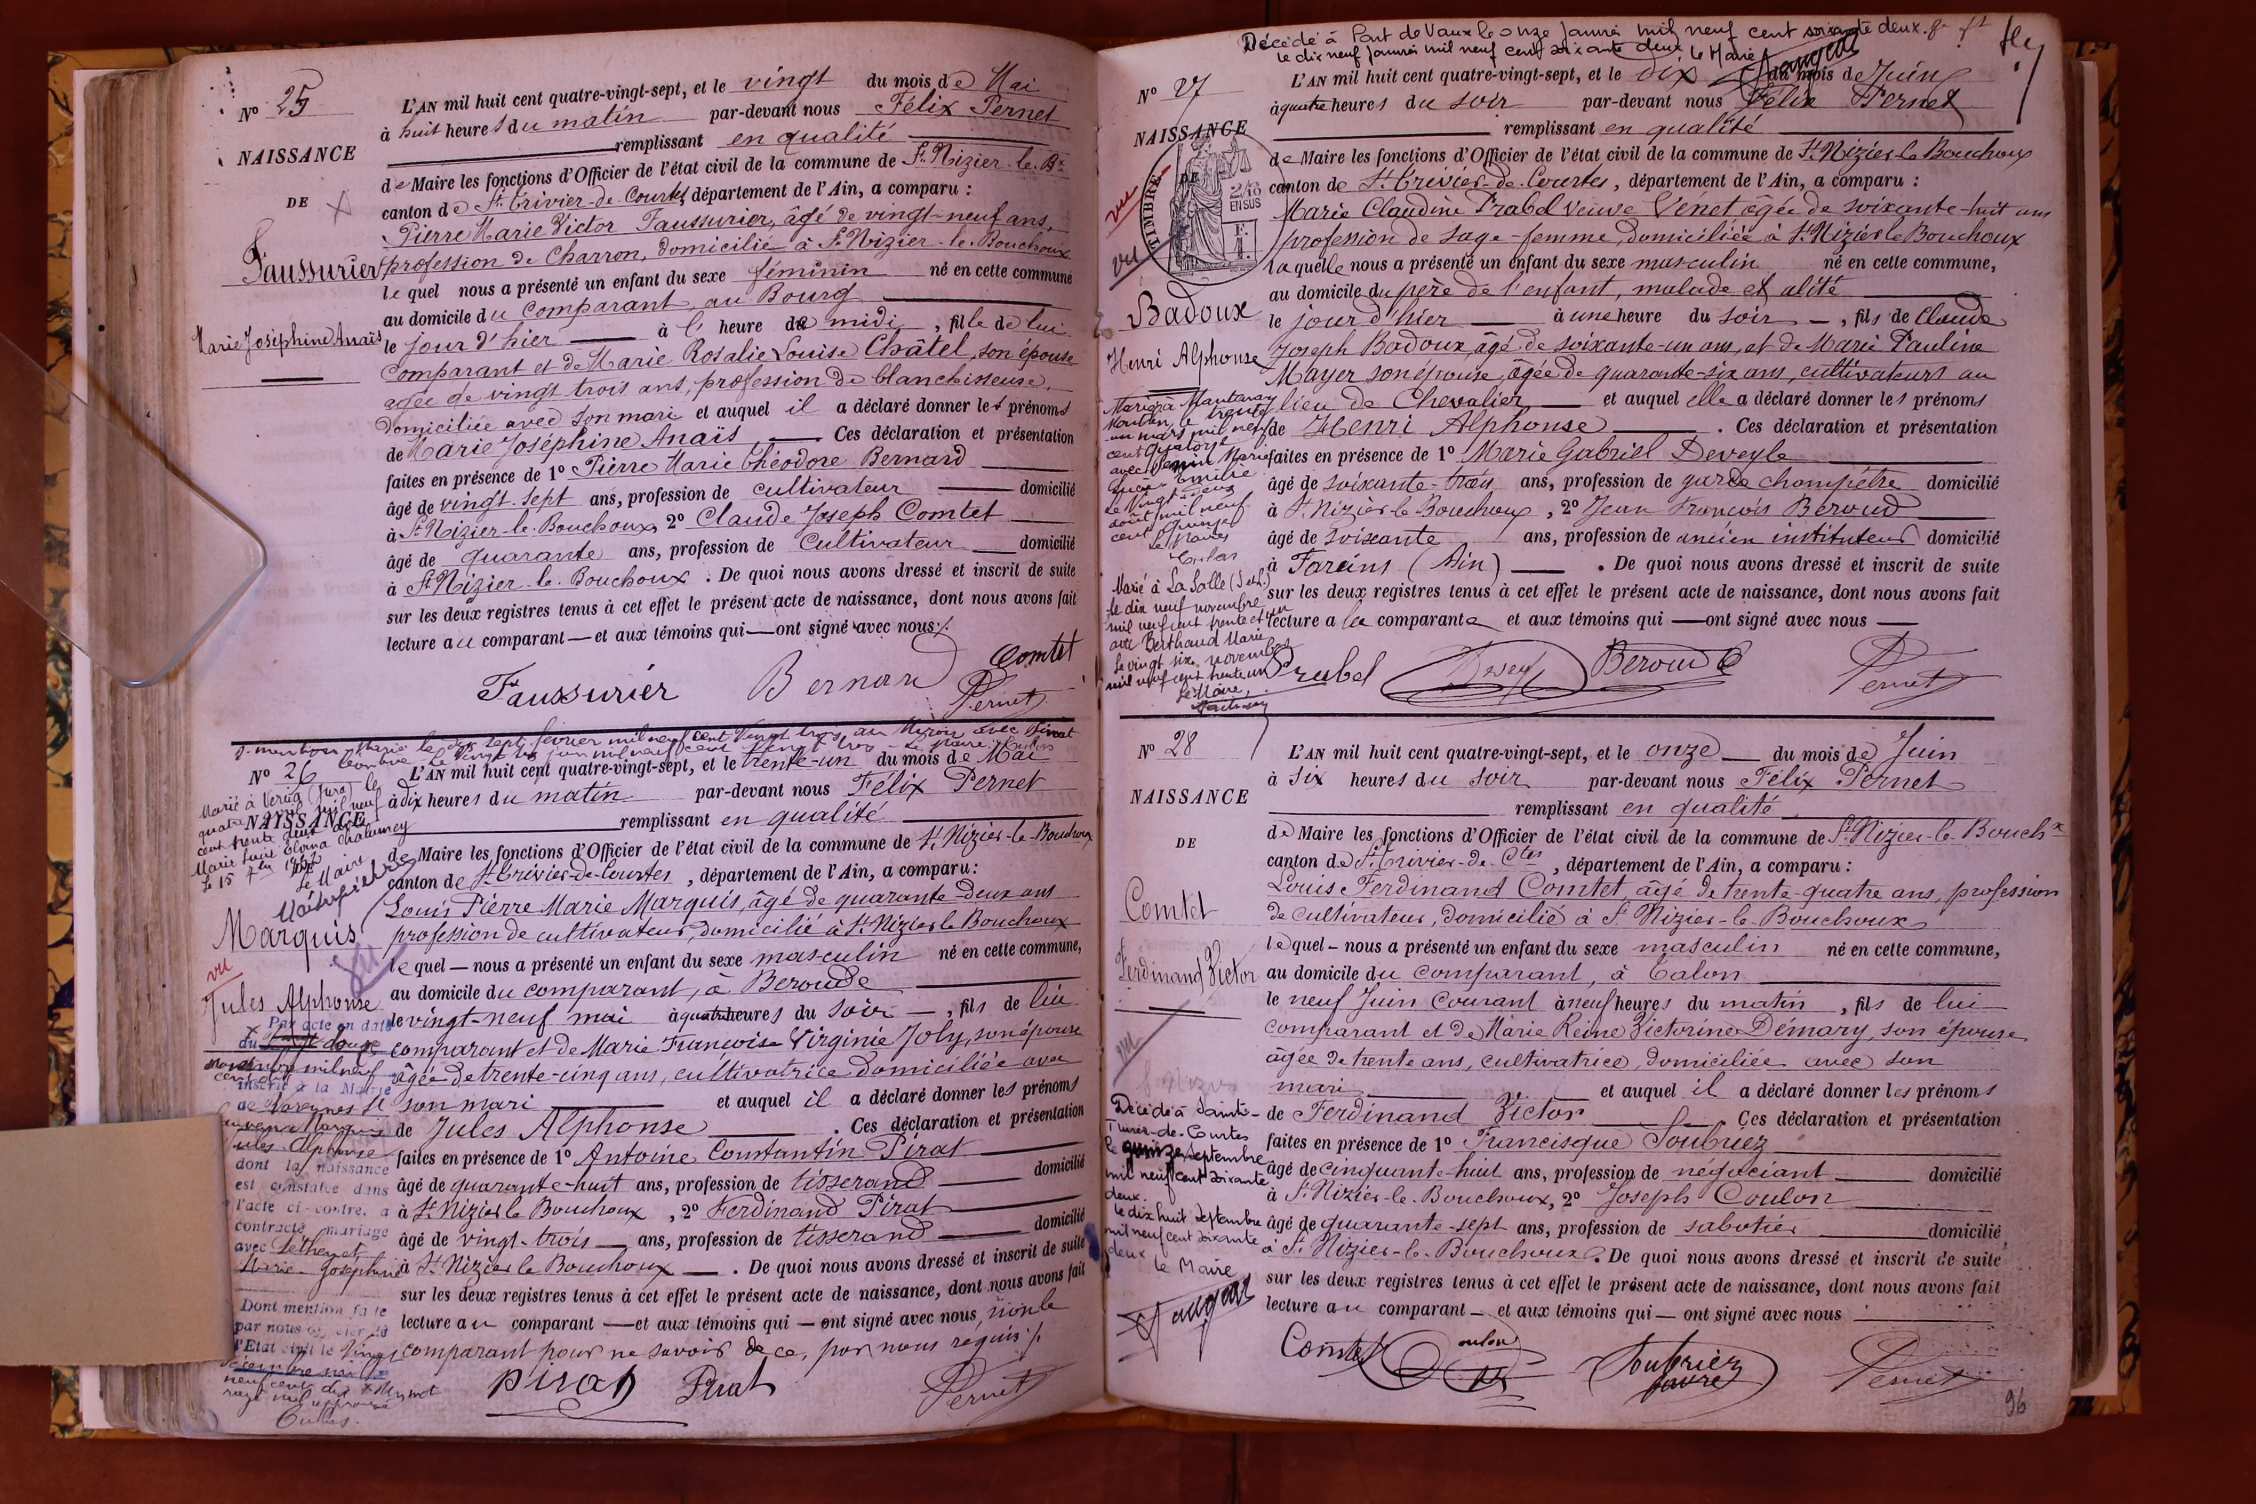 N° 25
NAISSANCE
DE
Faussurier
Marie Joséphine Anaïs
L'AN mil huit cent quatre-vingt-sept, et le vingt du mois de Mai
à huit heures du matin par-devant nous Félix Pernet
remplissant en qualité
de Maire les fonctions d'Officier de l'état civil de la commune de St Nizier-le-Bx
canton de St Trivier-de-Courtes, département de l'Ain, a comparu :
Pierre Marie Victor Faussurier, âgé de vingt-neuf ans,
profession de Charron, domicilié à St Nizier-le-Bouchoux
lequel nous a présenté un enfant du sexe féminin né en cette commune
au domicile du comparant, au Bourg
le jour d'hier à l' heure de midi, fille de lui
comparant et de Marie Rosalie Louise Châtel, son épouse
agée de vingt trois ans, profession de blanchisseuse,
domiciliée avec son mari et auquel il a déclaré donner les prénoms
de Marie Joséphine Anaïs. Ces déclaration et présentation
faites en présence de 1° Pierre Marie Théodore Bernard
âgé de vingt-sept ans, profession de cultivateur domicilié
à St Nizier-le-Bouchoux, 2° Claude Joseph Comtet
âgé de quarante ans, profession de cultivateur domicilié
à St Nizier-le-Bouchoux. De quoi nous avons dressé et inscrit de suite
sur les deux registres tenus à cet effet le présent acte de naissance, dont nous avons fait
lecture au comparant et aux témoins qui ont signé avec nous
Faussurier Bernard Comtet
Pernet
mention Marié le dix sept février mil neuf cent vingt trois au Miroir avec Pirat
Léontine
N° 26
Marié à Véria (Jura) le
quatre mil neuf
cent trente deux avec
Marie Lucie Elvina Chalumey
Le Maire
NAISSANCE
Marquis
vu
Jules Alphonse
Par acte en date
du douze
novembre mil neuf
cent
inscrit à la Mairie
de Varennes St
Sauveur Marquis
Jules Alphonse
dont la naissance
est constatée dans
l'acte ci-contre, a
contracté mariage
avec Péthenet
Marie-Joséphine
Dont mention faite
par nous officier de
l'Etat civil le vingt
L'AN mil huit cent quatre-vingt-sept, et le trente-un du mois de Mai
à dix heures du matin par-devant nous Félix Pernet
remplissant en qualité
de Maire les fonctions d'Officier de l'état civil de la commune de St Nizier-le-Bouchoux
canton de St Trivier-de-Courtes, département de l'Ain, a comparu :
Louis Pierre Marie Marquis, âgé de quarante-deux ans
profession de cultivateur, domicilié à St Nizier le Bouchoux
lequel nous a présenté un enfant du sexe masculin né en cette commune,
au domicile du comparant, à Beroude
le vingt-neuf mai à quatre heures du soir, fils de lui
comparant et de Marie Françoise Virginie Joly, son épouse
âgée de trente-cinq ans, cultivatrice domiciliée avec
son mari et auquel il a déclaré donner les prénoms
de Jules Alphonse. Ces déclaration et présentation
faites en présence de 1° Antoine Constantin Pirat
âgé de quarante-huit ans, profession de tisserand domicilié
à St Nizier le Bouchoux, 2° Ferdinand Pirat
âgé de vingt-trois ans, profession de tisserand domicilié
à St Nizier le Bouchoux. De quoi nous avons dressé et inscrit de suite
sur les deux registres tenus à cet effet le présent acte de naissance, dont nous avons fait
lecture au comparant et aux témoins qui ont signé avec nous, non le
comparant pour ne savoir de ce, par nous requis
Pirat Pirat Pernet
Décédé à Pont de Vaux le onze Janvier mil neuf cent soixante deux.
le dix neuf Janvier mil neuf cent soixante deux Le Maire
N° 27
NAISSANCE
DE
TIMBRE
2/10
EN SUS
vu
vu
Badoux
Henri Alphonse
Marié à Mantenay
Montlin le trente
un mars mil neuf
cent quatorze
avec Marie
Emilie
Le vingt-deux
août mil neuf
cent quinze
Le Maire
Marié à La Salle (S.et.L.)
le dix neuf novembre
mil neuf cent trente et un
avec Berthaud Marie
Le vingt six novembre
mil neuf cent trente un
Le Maire,
L'AN mil huit cent quatre-vingt-sept, et le dix du mois de Juin
à quatre heures du soir par-devant nous Félix Pernet
remplissant en qualité
de Maire les fonctions d'Officier de l'état civil de la commune de St Nizier le Bouchoux
canton de St Trivier-de-Courtes, département de l'Ain, a comparu :
Marie Claudine Prabel veuve Venet âgée de soixante-huit ans
profession de sage-femme, domiciliée à St Nizier le Bouchoux
laquelle nous a présenté un enfant du sexe masculin né en cette commune,
au domicile du père de l'enfant, malade et alité
le jour d'hier à une heure du soir, fils de Claude
Joseph Badoux, âgé de soixante-un ans, et de Marie Pauline
Mayer son épouse, âgée de quarante-six ans, cultivateurs au
lieu de Chevalier et auquel elle a déclaré donner les prénoms
de Henri Alphonse. Ces déclaration et présentation
faites en présence de 1° Marie Gabriel Deveyle
âgé de soixante-trois ans, profession de garde champêtre domicilié
à St Nizier-le-Bouchoux, 2° Jean François Beroud
âgé de soixante ans, profession de ancien instituteur domicilié
à Fareins (Ain). De quoi nous avons dressé et inscrit de suite
sur les deux registres tenus à cet effet le présent acte de naissance, dont nous avons fait
lecture a la comparante et aux témoins qui ont signé avec nous
Prabel Beroud Pernet
N° 28
NAISSANCE
DE
Comtet
Ferdinand Victor
Décédé à Saint-
Trivier-de-Courtes
le quinze septembre
mil neuf cent soixante
deux.
le dix huit septembre
mil neuf cent soixante
deux
Le Maire
L'AN mil huit cent quatre-vingt-sept, et le onze du mois de Juin
à six heures du soir par-devant nous Félix Pernet
remplissant en qualité
de Maire les fonctions d'Officier de l'état civil de la commune de St Nizier-le-Bouchx
canton de St Trivier-de-Ctes, département de l'Ain, a comparu :
Louis Ferdinand Comtet, âgé de trente-quatre ans, profession
de cultivateur, domicilié à St Nizier-le-Bouchoux
lequel nous a présenté un enfant du sexe masculin né en cette commune,
au domicile du comparant, à Talon
le neuf Juin courant à neuf heures du matin, fils de lui
comparant et de Marie Reine Victorine Démary, son épouse
âgée de trente ans, cultivatrice, domiciliée avec son
mari et auquel il a déclaré donner les prénoms
de Ferdinand Victor. Ces déclaration et présentation
faites en présence de 1° Francisque Soubriez
âgé de cinquante-huit ans, profession de négociant domicilié
à St Nizier-le-Bouchoux, 2° Joseph Coulon
âgé de quarante-sept ans, profession de sabotier domicilié
à St Nizier-le-Bouchoux. De quoi nous avons dressé et inscrit de suite
sur les deux registres tenus à cet effet le présent acte de naissance, dont nous avons fait
lecture au comparant et aux témoins qui ont signé avec nous
Comtet Coulon Pernet
96